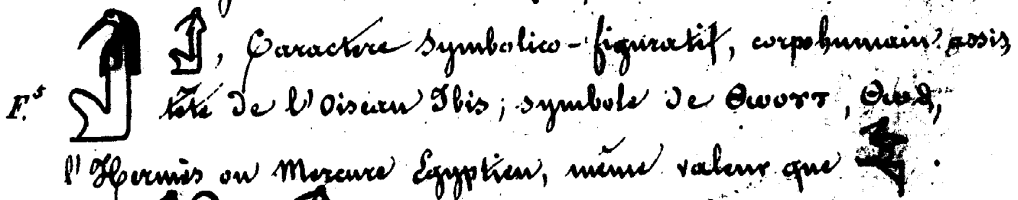 , Caractère symbolico-figuratif, corps humain assis
F.s tête de l'Oiseau Ibis; symbole de Ⲑⲱⲟⲩⲧ, Ⲑⲱⲑ,
l'Hermès ou Mercure Égyptien, même valeur que .